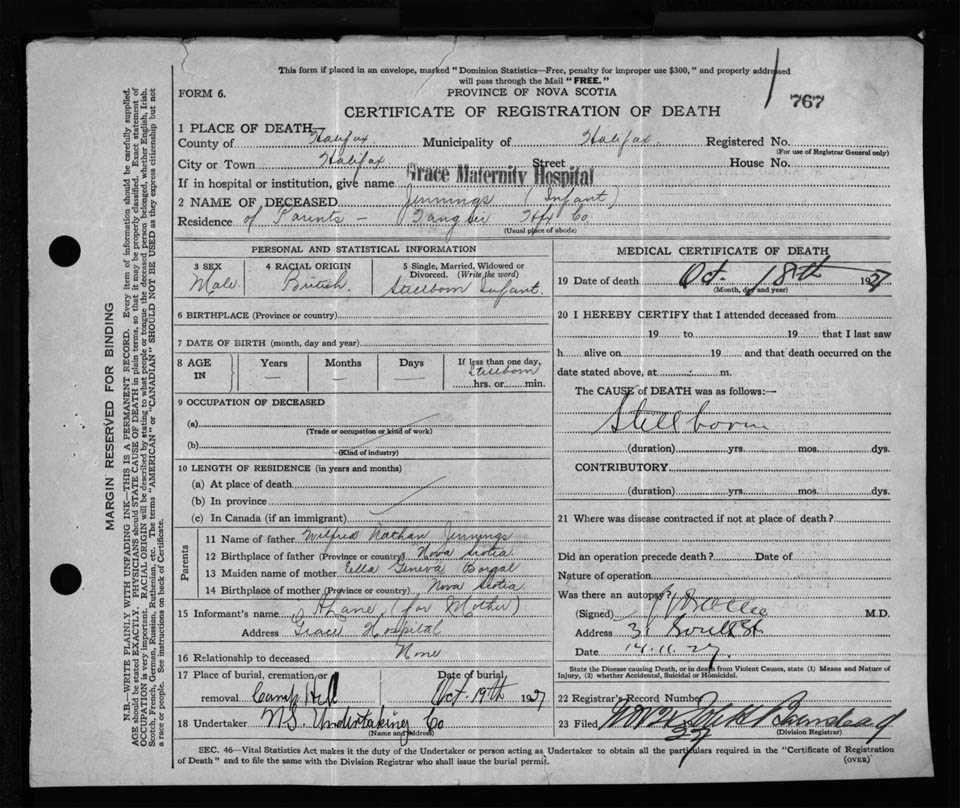 This form if placed in an envelope, marked "Dominion Statistics—Free, penalty for improper use $300," and properly addressed
will pass through the Mail "FREE."
767
FORM 6.
PROVINCE OF NOVA SCOTIA
CERTIFICATE OF REGISTRATION OF DEATH
1 PLACE OF DEATH—
County of Halifax Municipality of Halifax. Registered No.
(For use of Registrar General only)
City or Town Halifax Street House No.
If in hospital or institution, give name Grace Maternity Hospital
2 NAME OF DECEASED Jennings (Infant)
Residence of Parents — Tangier Hfx Co
(Usual place of abode)
PERSONAL AND STATISTICAL INFORMATION
3 SEX
Male
4 RACIAL ORIGIN
British
5 Single, Married, Widowed or
Divorced. (Write the word)
Stillborn Infant.
6 BIRTHPLACE (Province or country)
7 DATE OF BIRTH (month, day and year)
8 AGE
IN
Years
Months
Days
If less than one day,
Stillborn
hrs. or min.
9 OCCUPATION OF DECEASED
(a)
(Trade or occupation or kind of work)
(b)
(Kind of industry)
10 LENGTH OF RESIDENCE (in years and months)
(a) At place of death
(b) In province
(c) In Canada (if an immigrant)
Parents
11 Name of father Wilfred Nathan Jennings
12 Birthplace of father (Province or country) Nova Scotia
13 Maiden name of mother Ella Geneva
14 Birthplace of mother (Province or country) Nova Scotia
15 Informant's name (for Mother)
Address Grace Hospital
16 Relationship to deceased None
17 Place of burial, cremation or Date of burial
removal Camp Hill Oct. 19th 1927
18 Undertaker N.S. Undertaking Co
(Name and address)
MEDICAL CERTIFICATE OF DEATH
19 Date of death Oct. 18th 1927
(Month, day and year)
20 I HEREBY CERTIFY that I attended deceased from
19 to 19 that I last saw
h alive on 19 and that death occurred on the
date stated above, at m.
The CAUSE of DEATH was as follows:—
Stillborn
(duration) yrs. mos. dys.
CONTRIBUTORY
(duration) yrs. mos. dys.
21 Where was disease contracted if not at place of death?
Did an operation precede death? Date of
Nature of operation
Was there an autopsy?
(Signed) M.D.
Address 31 South St.
Date 14.11.27.
State the Disease causing Death, or in death from Violent Causes, state (1) Means and Nature of
Injury, (2) whether Accidental, Suicidal or Homicidal.
22 Registrar's Record Number
23 Filed
27
(Division Registrar)
SEC. 46—Vital Statistics Act makes it the duty of the Undertaker or person acting as Undertaker to obtain all the particulars required in the "Certificate of Registration
of Death" and to file the same with the Division Registrar who shall issue the burial permit.
(OVER)
MARGIN RESERVED FOR BINDING
N.B.—WRITE PLAINLY WITH UNFADING INK—THIS IS A PERMANENT RECORD. Every item of information should be carefully supplied.
AGE should be stated EXACTLY. PHYSICIANS should STATE CAUSE OF DEATH in plain terms, so that it may be properly classified. Exact statement of
OCCUPATION is very important. RACIAL ORIGIN will be described by stating to what people or tongue the deceased person belonged, whether English, Irish,
Scotch, French, German, Russian, Ruthenian, etc. The terms "AMERICAN" or "CANADIAN" SHOULD NOT BE USED as they express citizenship but not
a race or people. See instructions on back of Certificate.